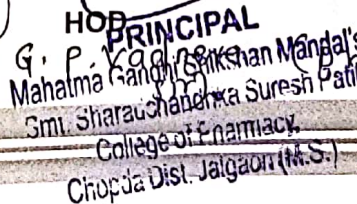 HOD
PRINCIPAL
G. P.
Mahatma Gandhi Shikshan Mandal's
Smt. Sharadchandrika Suresh Patil
College of Pharmacy,
Chopda Dist. Jalgaon (M.S.)